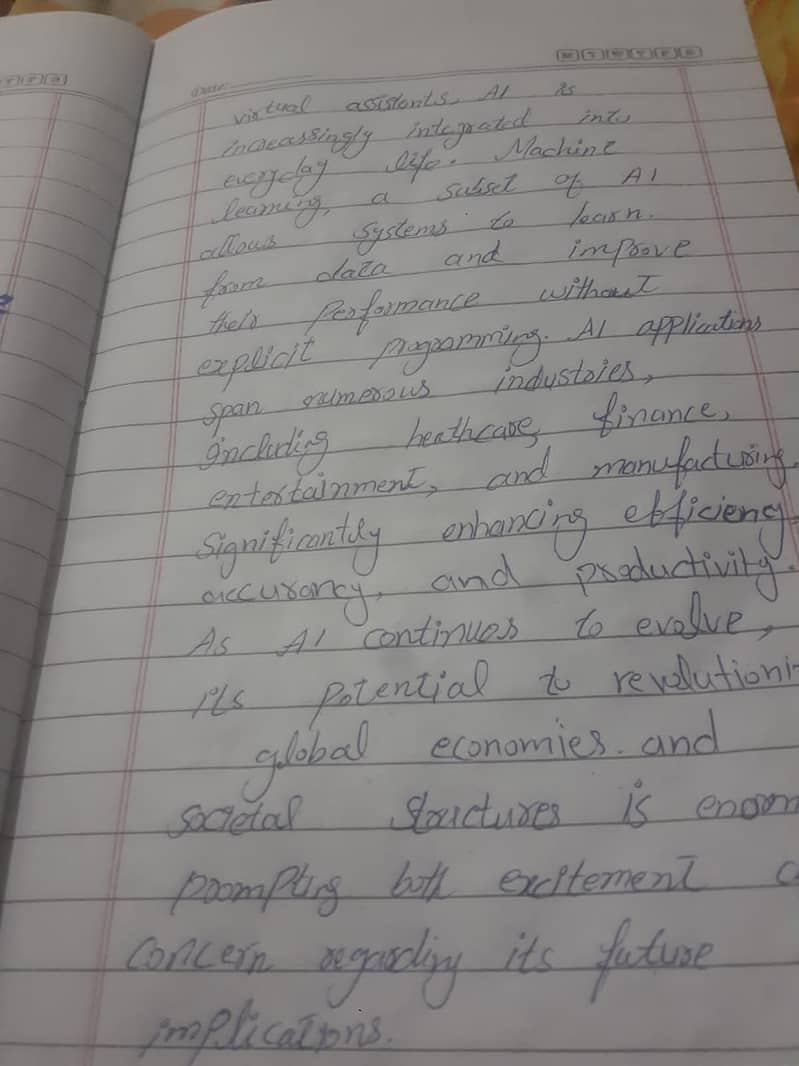 M T W T F S
Date:
virtual assistants, AI is
increassingly integrated into
everyday life. Machine
learning, a subset of AI
allows systems to learn.
from data and improve
their Performance without
explicit programming. AI applications
span numerous industries,
including heathcare, finance,
entertainment, and manufacturing.
Significantly enhancing efficiency,
accurancy, and productivity.
As AI continues to evolve,
its potential to revolutioni-
global economies. and
societal structures is enorm
prompting both excitement a
concern regarding its future
implications.